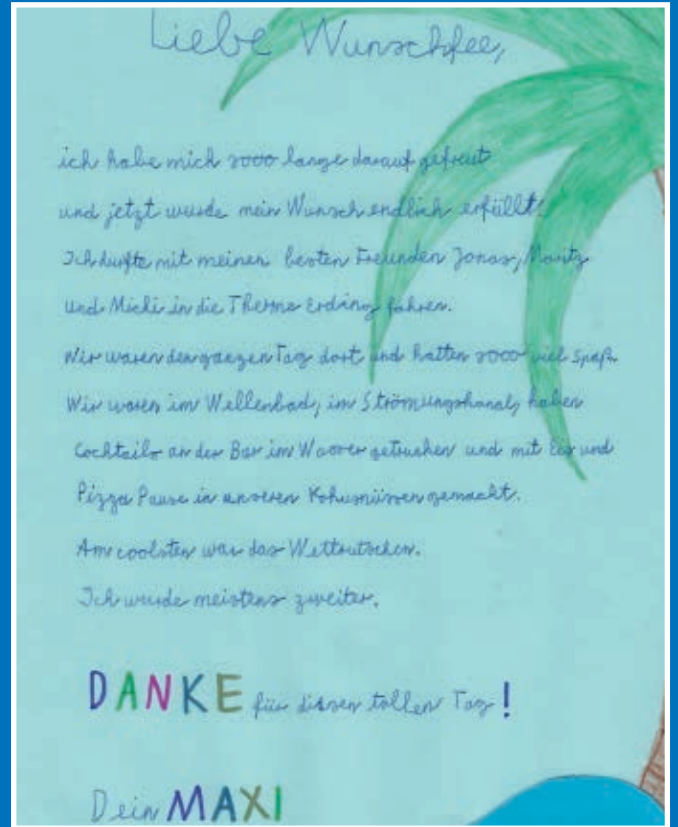 Liebe Wunschfee,
ich habe mich sooo lange darauf gefreut
und jetzt wurde mein Wunsch endlich erfüllt!
Ich durfte mit meinen besten Freunden Jonas, Moritz
und Michi in die Therme Erding fahren.
Wir waren den ganzen Tag dort und hatten sooo viel Spaß.
Wir waren im Wellenbad, im Strömungskanal, haben
Cocktails an der Bar im Wasser getrunken und mit Eis und
Pizza Pause in unseren Kokusnüssen gemacht.
Am coolsten war das Wettrutschen.
Ich wurde meistens zweiter.
DANKE für diesen tollen Tag!
Dein MAXI